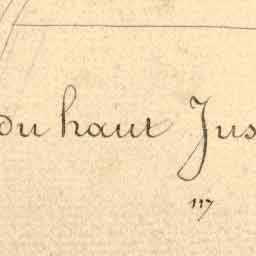 du haut Jus
117